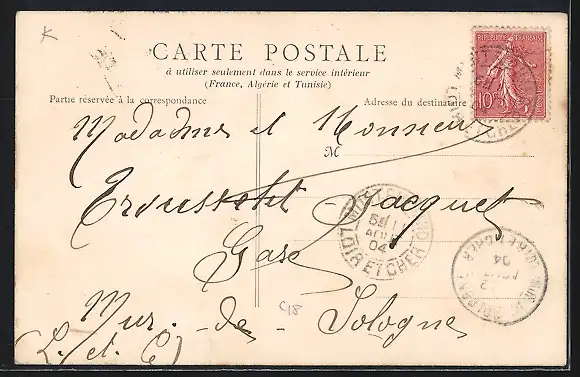 K
CARTE POSTALE
à utiliser seulement dans le service intérieur
(France, Algérie et Tunisie)
Partie réservée à la correspondance
Adresse du destinataire
REPUBLIQUE FRANÇAISE
10c
Madame et Monsieur
M
Jacquet
LOIR ET CHER
11
AOUT
04
Gare
Mur-de-Sologne
(L. et C.)
LOIR ET CHER
12
AOUT
04
C18